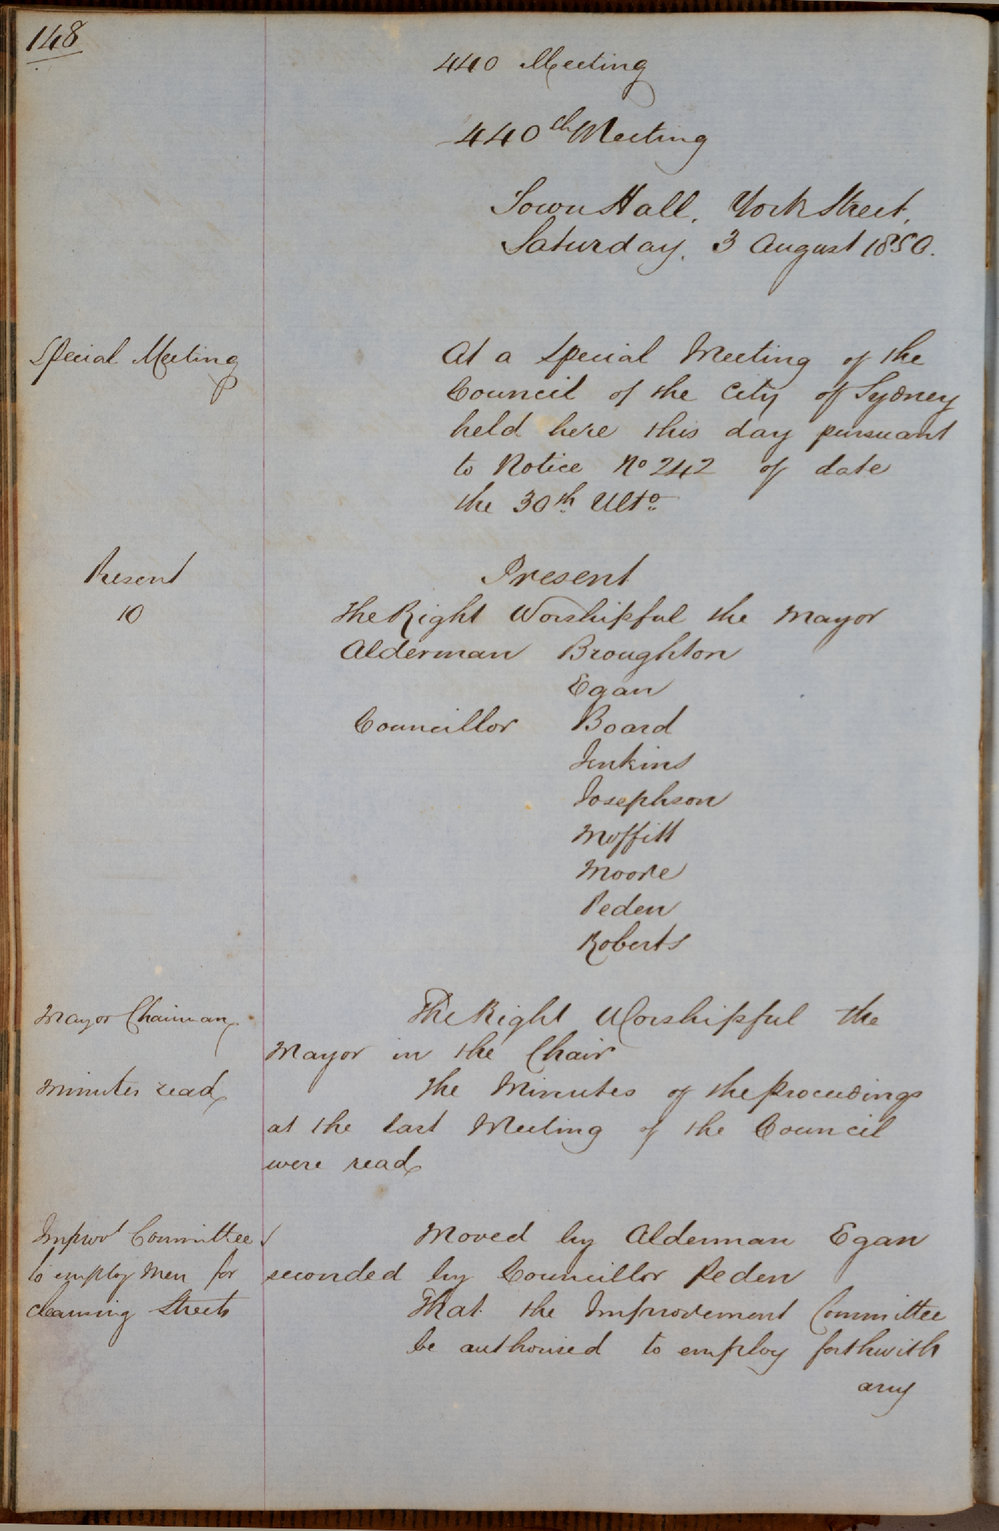 148
440 Meeting
440th Meeting
Town Hall, York Street,
Saturday, 3 August 1850.
Special Meeting
At a Special Meeting of the
Council of the City of Sydney
held here this day pursuant
to Notice No 242 of date
the 30th Ulto
Present
10
Present
The Right Worshipful the Mayor
Alderman Broughton
Egan
Councillor Board
Jenkins
Josephson
Moffitt
Moore
Peden
Roberts
Mayor Chairman
The Right Worshipful the
Mayor in the Chair
Minutes read
The Minutes of the proceedings
at the last Meeting of the Council
were read
Improvt Committee
to employ Men for
cleaning Streets
Moved by Alderman Egan
seconded by Councillor Peden
That the Improvement Committee
be authorised to employ forthwith
any